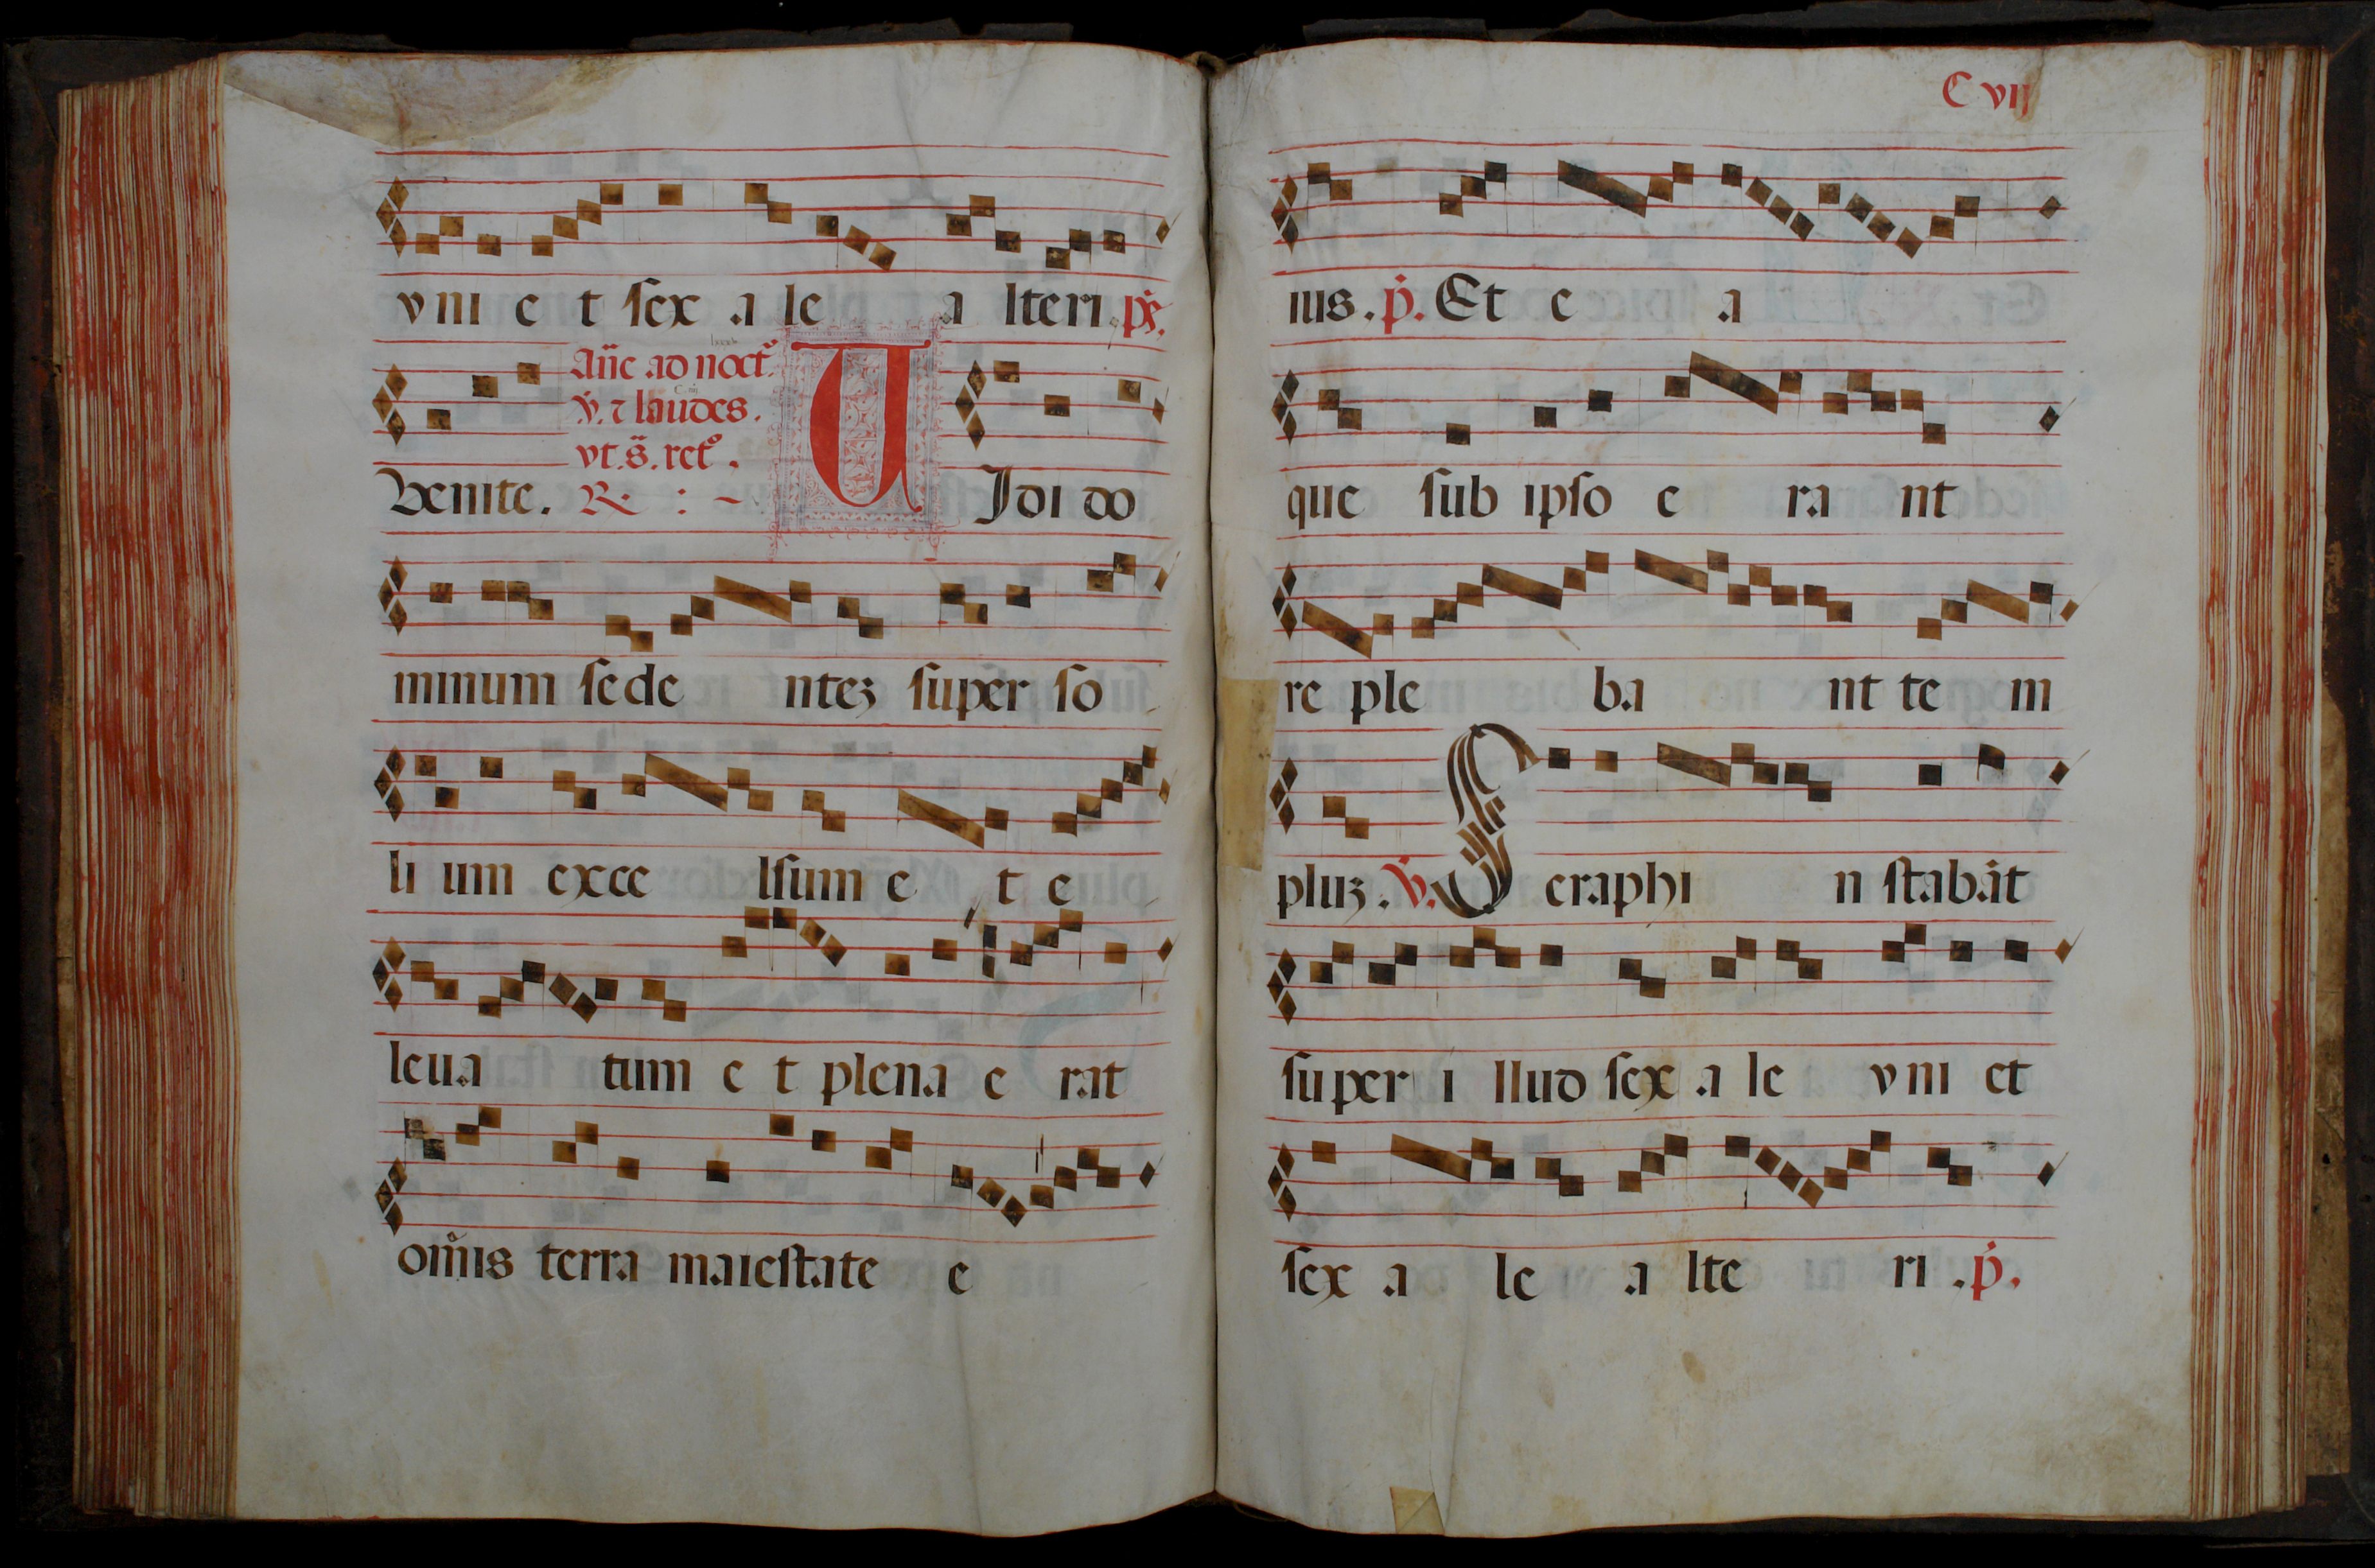 vni e t sex a le a lteri. p̃s.
Añe ad noct͛.
Venite. v̇. ⁊ laudes. VJdi do
vt. s̃. ret͛.
R. : ~
minum sede ntez super so
li um exce lsum e t e
leua tum e t plena e rat
om̃is terra maiestate e
C vij
ius. ṗ. Et e a
que sub ipso e ra nt
re ple ba nt te m
pluz. v̇. S eraphi n stabãt
super i llud sex a le vni et
sex a le a lte ri. ṗ.